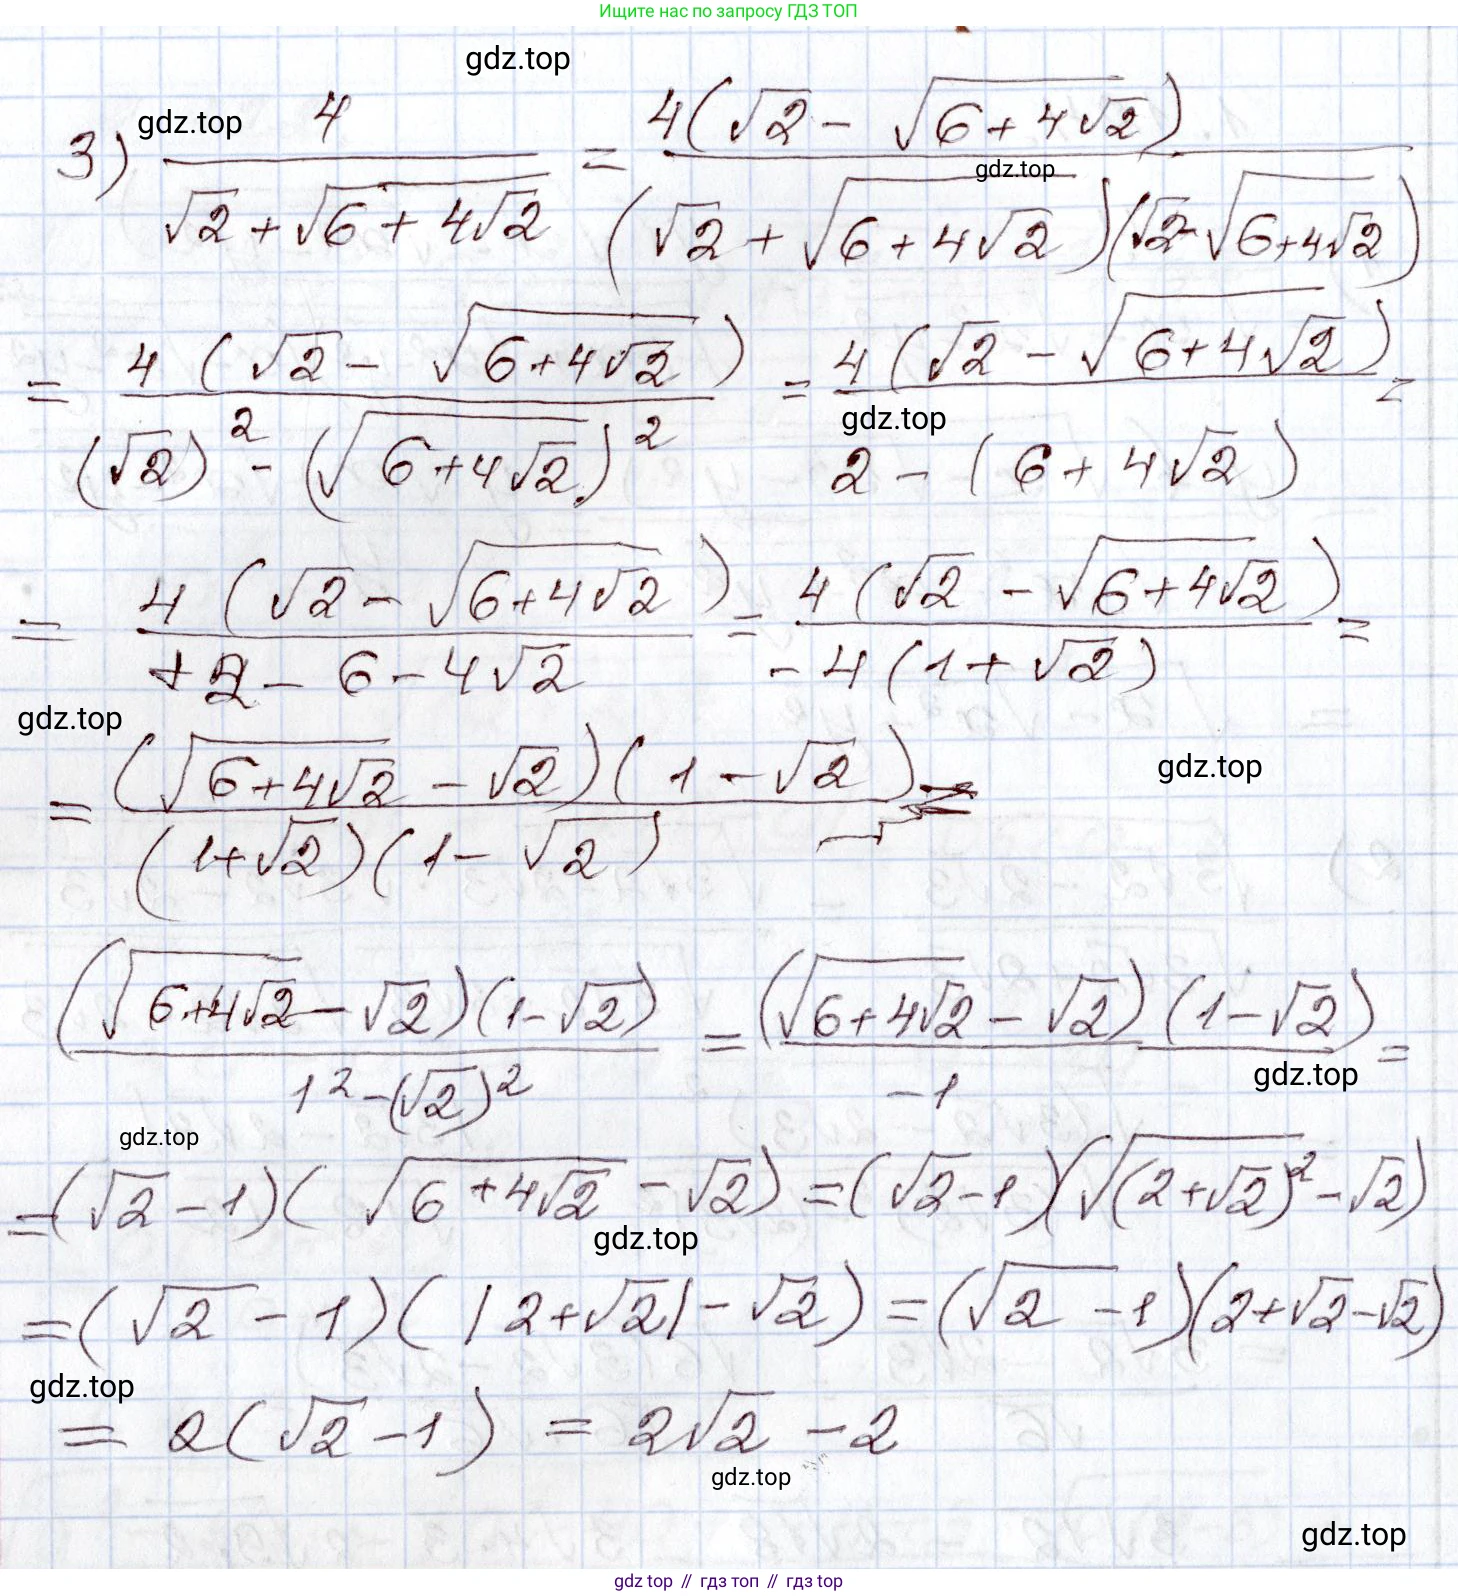 Ищите нас по запросу ГДЗ ТОП
gdz.top
gdz.top
3) 4/(√2 + √(6 + 4√2)) = 4(√2 - √(6 + 4√2))/((√2 + √(6 + 4√2))(√2 - √(6 + 4√2)))
gdz.top
= 4(√2 - √(6 + 4√2))/((√2)² - (√(6 + 4√2))²) = 4(√2 - √(6 + 4√2))/(2 - (6 + 4√2)) =
gdz.top
= 4(√2 - √(6 + 4√2))/(+2 - 6 - 4√2) = 4(√2 - √(6 + 4√2))/(-4(1 + √2)) =
gdz.top
gdz.top
= (√(6 + 4√2) - √2)(1 - √2)/((1 + √2)(1 - √2)) =
(√(6 + 4√2) - √2)(1 - √2)/(1² - (√2)²) = (√(6 + 4√2) - √2)(1 - √2)/(-1) =
gdz.top
gdz.top
= (√2 - 1)(√(6 + 4√2) - √2) = (√2 - 1)(√((2 + √2)²) - √2)
gdz.top
= (√2 - 1)(|2 + √2| - √2) = (√2 - 1)(2 + √2 - √2)
gdz.top
= 2(√2 - 1) = 2√2 - 2
gdz.top
gdz.top
gdz top // гдз топ // гдз top